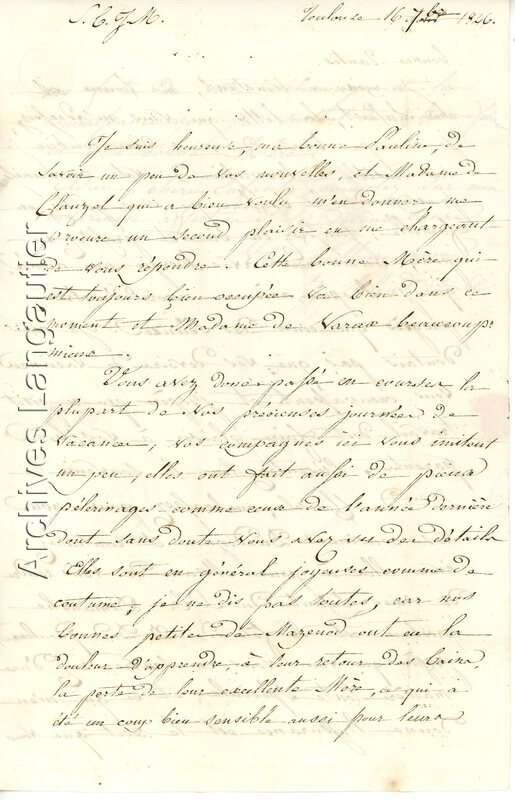 S. C. J. M. Toulouse 16 7bre 1826.
Je suis heureuse, ma bonne Pauline, de
savoir un peu de vos nouvelles, et Madame de
Clauzel qui a bien voulu m'en donner, me
procure un second plaisir en me chargeant
de vous répondre. Cette bonne Mère qui
est toujours bien occupée va bien dans ce
moment et Madame de Varax beaucoup
mieux.
Vous avez donc passé en courses la
plupart de vos précieuses journées de
vacances, vos compagnes ici vous imitent
un peu, elles ont fait aussi de pieux
pélerinages comme ceux de l'année dernière
dont sans doute vous avez su des détails
Elles sont en général joyeuses comme de
coutume, je ne dis pas toutes, car nos
bonnes petites de Mazenod ont eu la
douleur d'apprendre, à leur retour des bains,
la perte de leur excellente Mère, ce qui a
été un coup bien sensible aussi pour leurs
Archives Langautier